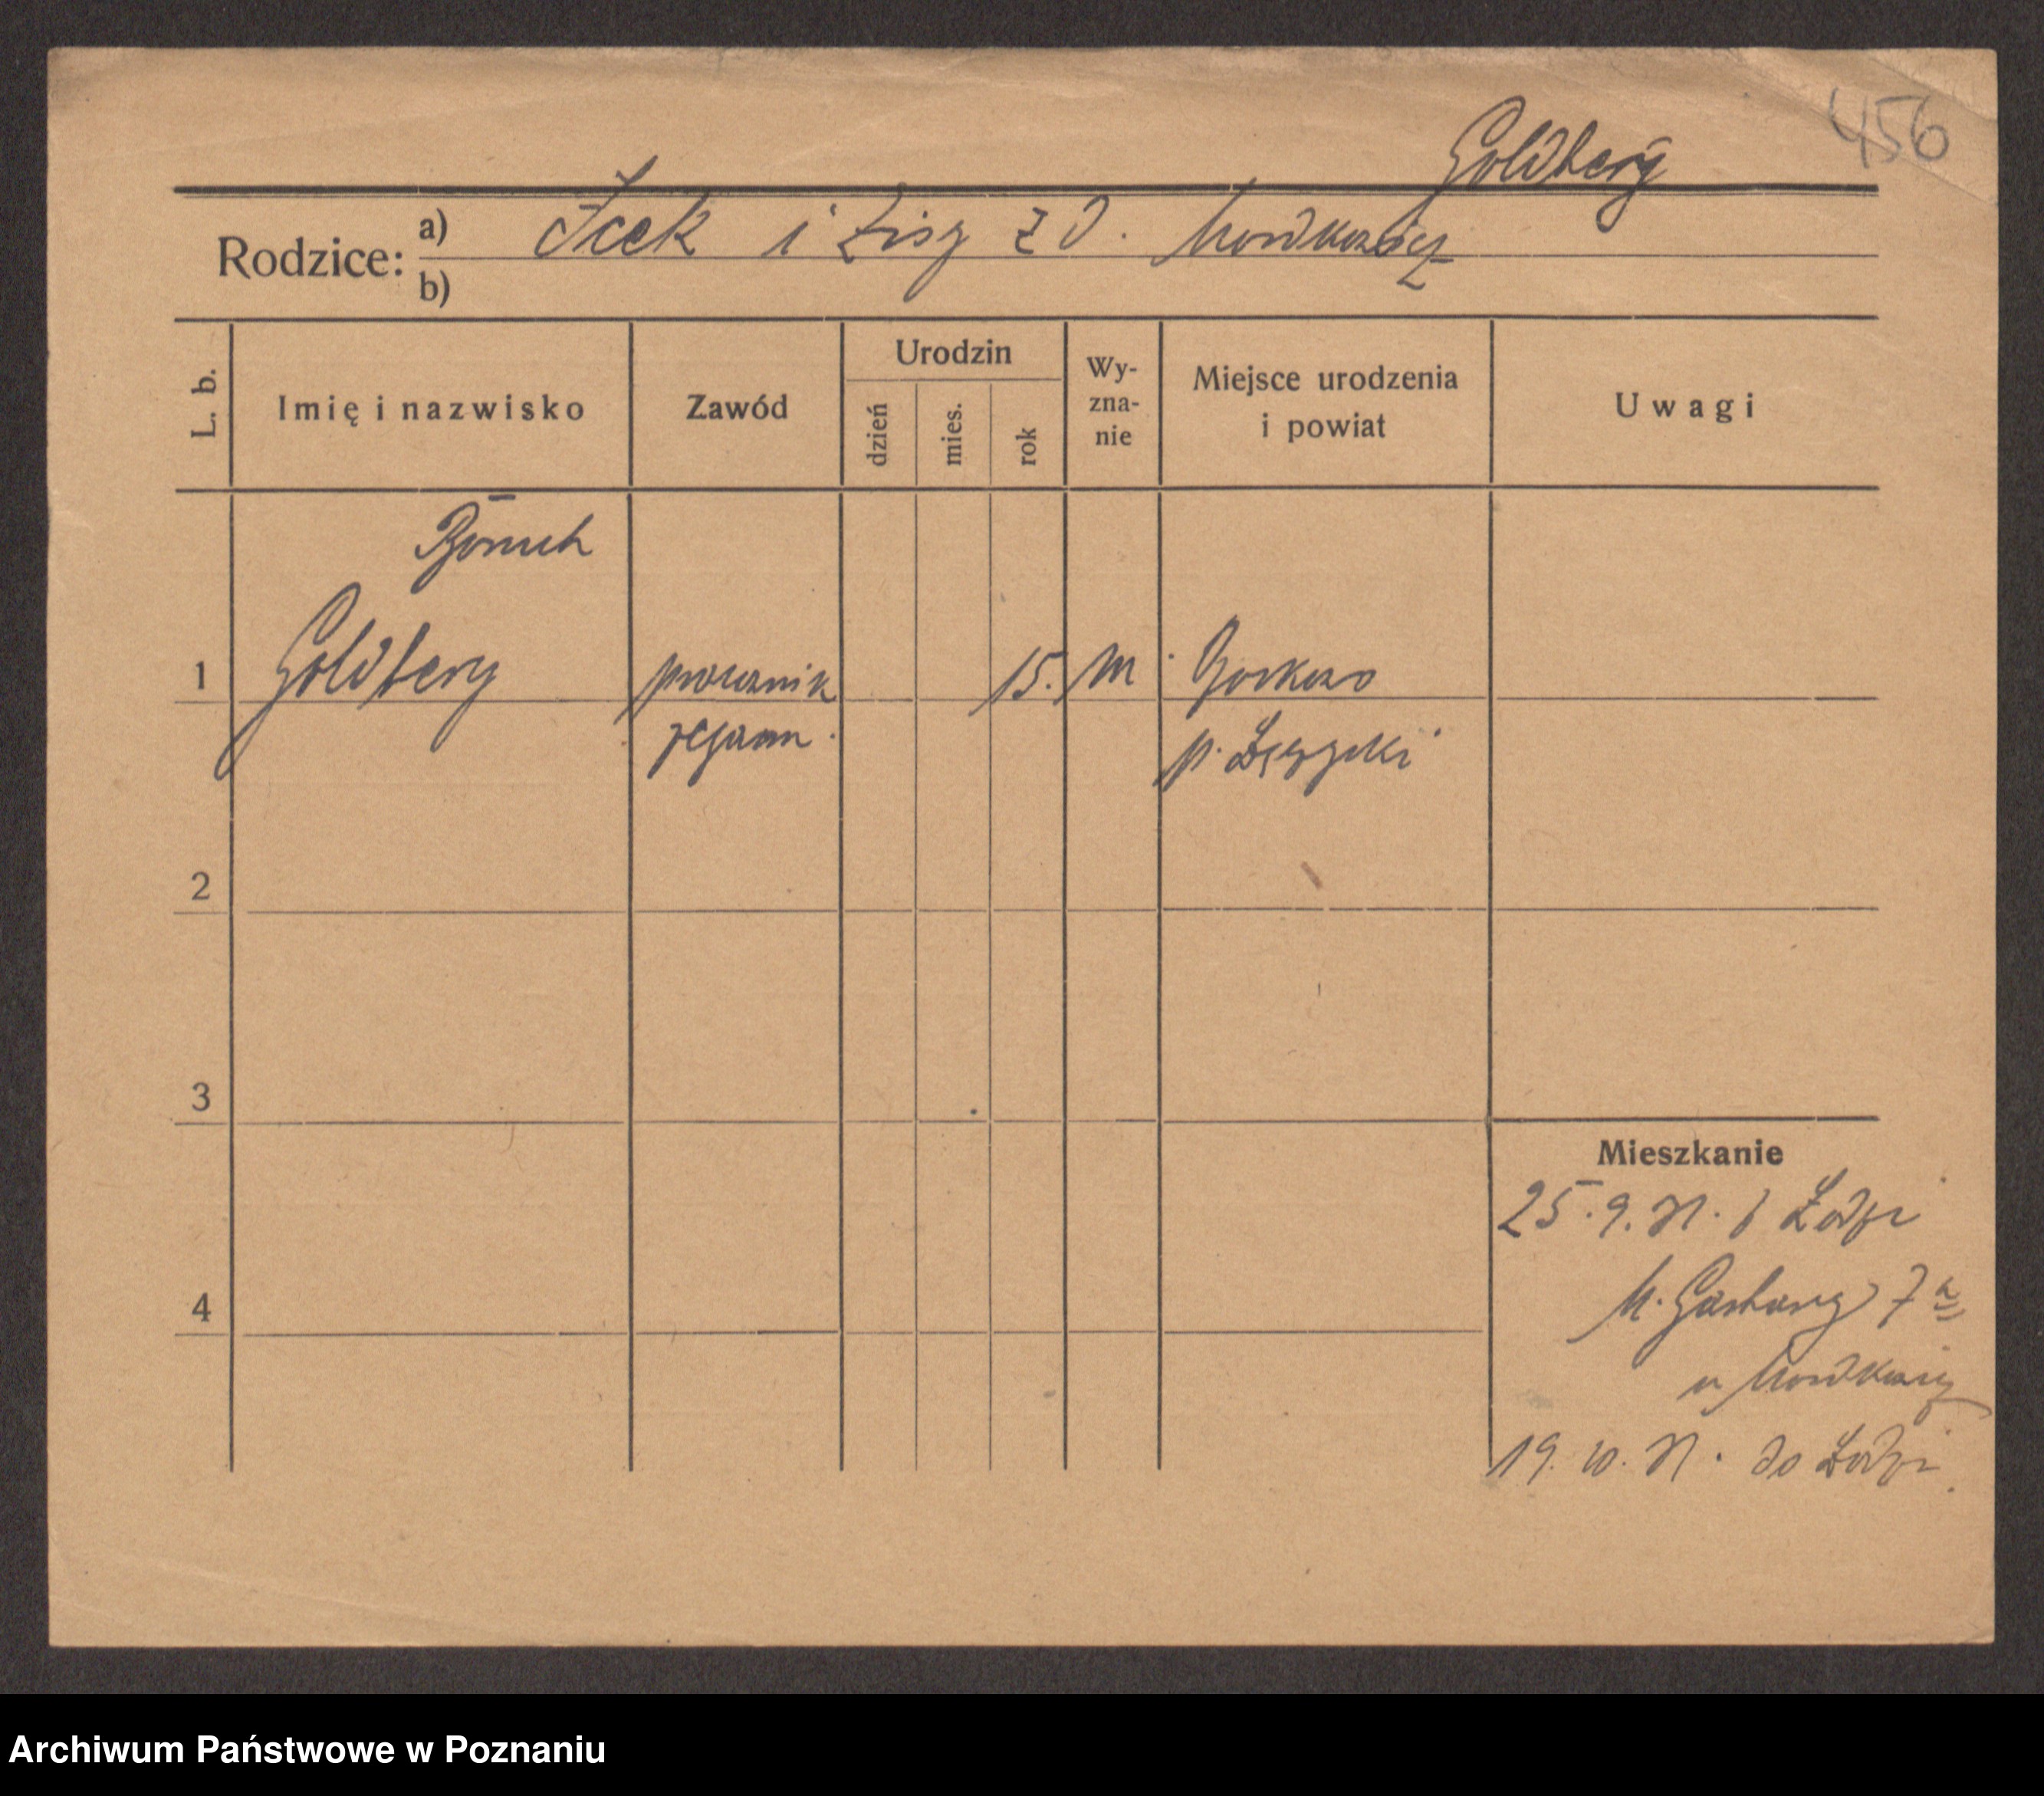 456
Goldberg
Rodzice: a) Icek i Zisy z d. Mordkowicz
b)
L. b. Imię i nazwisko Zawód Urodzin dzień mies. rok Wy-zna-nie Miejsce urodzenia i powiat Uwagi
Boruch
1 Goldberg pracownik 15. m.
zegarm.
p. Łęczycki
2
3
Mieszkanie
25. 9. 31. z Łodzi
4 M. Garbary 7a
u Mordkowicz
19. 10. 31. do Łodzi.
Archiwum Państwowe w Poznaniu